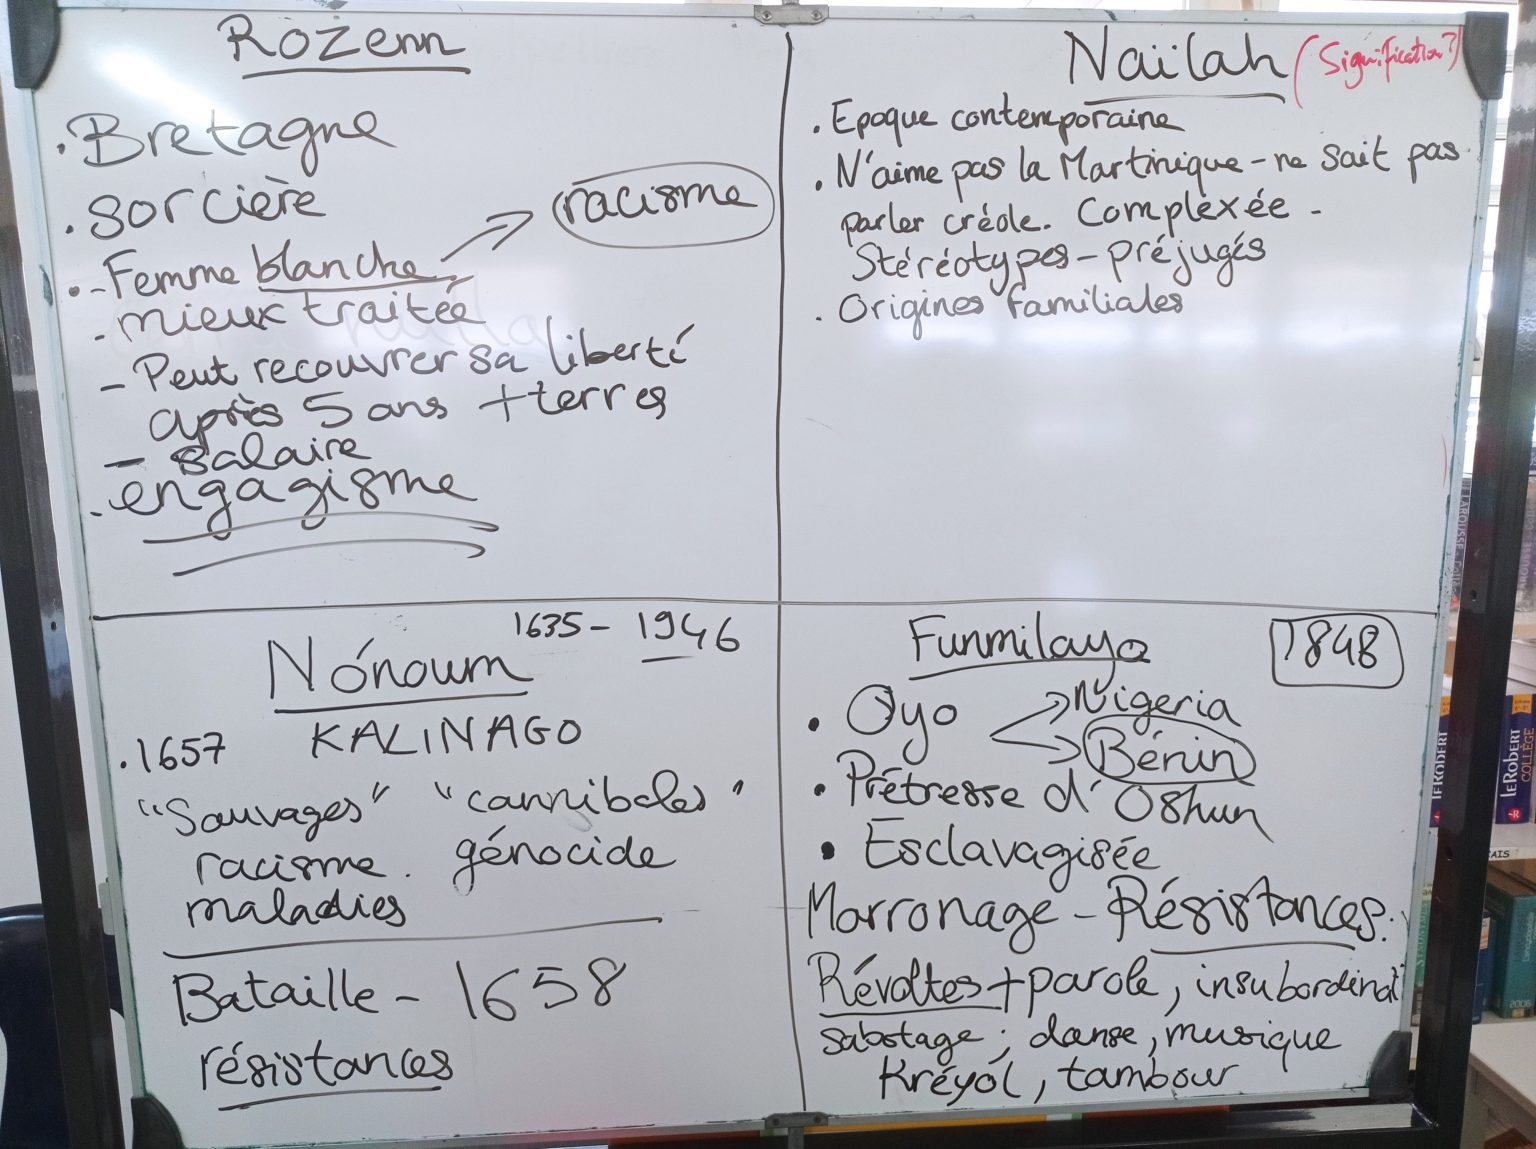 Rozenn
. Bretagne
. sorcière
racisme
. - Femme blanche
- mieux traitée
- Peut recouvrer sa liberté
après 5 ans + terres
- salaire
. engagisme
Naïlah (Signification?)
. Epoque contemporaine
. N'aime pas la Martinique - ne sait pas
parler créole. Complexée -
Stéréotypes - préjugés
. Origines familiales
1635 - 1946
Nónoum
KALINAGO
. 1657
"Sauvages" "cannibales"
racisme. génocide
maladies
Bataille - 1658
résistances
Funmilayo 1848
. Oyo
Nigeria
Bénin
. Prêtresse d'Oshun
. Esclavagisée
Marronage - Résistances.
Révoltes + parole, insubordinat
sabotage ; danse, musique
Kréyól, tambour
LAROUSSE
LE ROBERT
LE ROBERT
COLLÈGE
2006